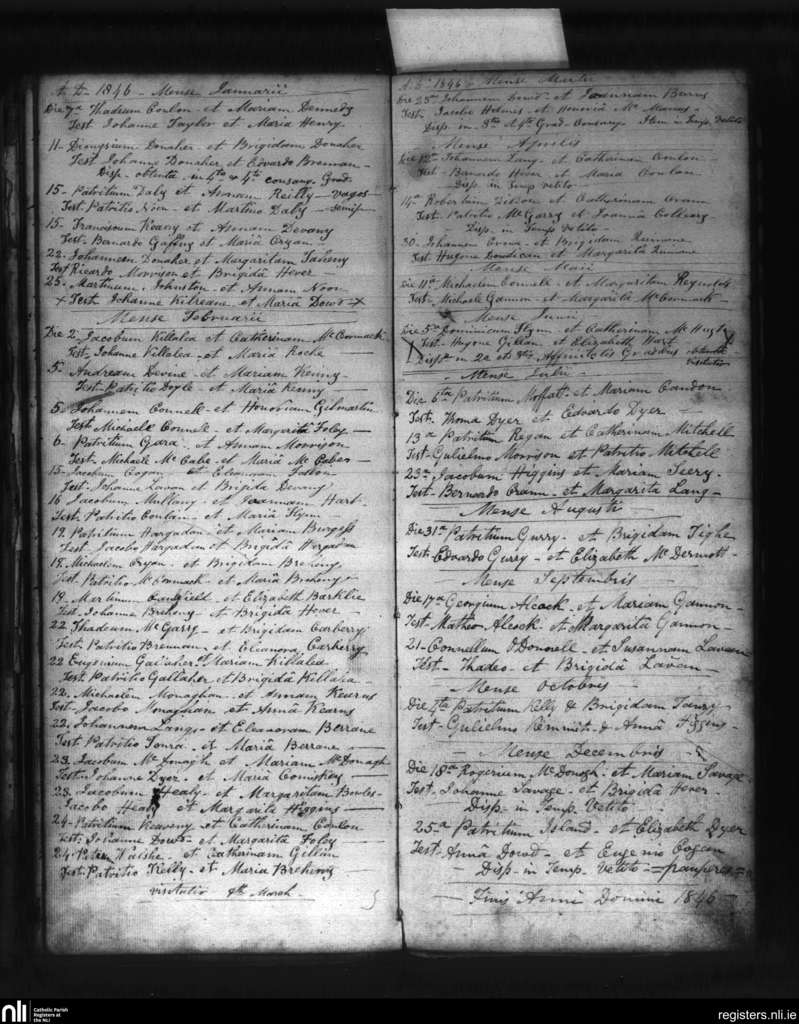 A.D. 1846 - Mense Januarii
Die 7a Thadeum Conlon - et Mariam Dennedy
Test Johanne Taylor et Maria Henry.
11 - Dionysium Donaher - et Brigidam Donaher
Test Johanne Donaher et Edvardo Brennan -
Disp. obtenta in 4to & 4to consang. Grad.
15 - Patritium Daly et Annam Reilly - vagos -
Test. Patritio Noon et Martino Daly
15 - Franciscum Keany et Annam Devany
Test. Bernardo Gaffeny et Maria Cryan
22 - Johannem Donaher et Margaritam Taheny
Test Ricardo Morrison et Brigidâ Hever -
25 - Martinum Johnston et Annam Noon
x Test. Johanne Kilreane et Mariâ Dowd x
Mense Februarii
Die 2 - Jacobum Killalea et Catherinam McCormack
Test. Johanne Killalea - et Maria Roche
5 - Andream Devine - et Mariam Kening
Test Patritio Doyle - et Mariâ Kenny
5 - Johannem Connell - et Honoriam Gilmartin
Test Michaele Connell - et Margaritâ Foley -
6 - Patritium Gara - et Annam Morrison
Test. Michaele McCabe et Mariâ McCabe -
15 - Jacobum Cogan et Eleanoram Fallon
Test - Johanne Lavan et Brigida Devany
16 Jacobum Mullany - et Joannam Hart.
Test. Patritio Conlan - et Mariâ Flynn -
17 Patritium Hargadan - et Mariam Burgess
Test Jacobo Hargadan et Brigidâ Hargadan
18 - Michaelem Cryan - et Brigidam Breheny
Test. Patritio McCormack - et Mariâ Breheny
19 - Martinum - et Elizabeth Barklie
Test - Johanne Breheny - et Brigidâ Hever -
22 Thadeum McGarry - et Brigidam Carberry
Test. Patritio Brennan - et Eleanora Carberry
22 Eugenium Gallaher - Mariam Killalea
Test Patritio Gallaher et Brigidâ Killalea -
22. Michaelem Monaghan - et Annam Kearns
Test - Jacobo Monaghan - et Annâ Kearns
22. Johannem Lang - et Eleanoram Berrane
Test Patritio - et Mariâ Berrane -
23. Jacobum McDonagh et Mariam McDonagh
Test - Johanne Dyer - et Mariâ Comiskey -
23. Jacobum Healy - et Margaritam Bowles -
Jacobo Healy et Margarita Higgins -
24 - Patritium Keaveny et Catherinam Conlon
Test. Johanne Dowd - et Margarita Foley -
24. Peter Walshe - et Catherinam Gillan
Test - Patritio Kelly - et Maria Breheny
visitatio 4th March -
A.D. 1846 - Mense Martii
Die 25a Johannem Dowd - et Joannam Burns
Test. Jacobo Holmes - et Honoriâ McManus -
Disp - in 3tio & 4to Grad - Consang. Item in Temp. Vetito
Mense Aprilis
Die 12a Johannem Lang - et Catherinam Conlon -
Test - Bernardo Hever - et Maria Conlon
Disp - in Temp vetito -
14 - Robertum - et Catherinam Crann
Test. Patritio McGarry et Joanna Collery -
Disp - in Temp. Vetito -
30 - Johannem - et Brigidam
Test Hugone Houdican et Margaritâ
Mense Maii
Die 11a Michaelem Connell - et Margaritam Reynolds
Test - Michaele Gannon - et Margaritâ McCormack -
Mense Junii
Die 5a Dominicum Flynn - et Catherinam McHugh
Test - Hugone Gillan - et Elizabeth Hart
Disp in 2a et Affinitatis Gradibus obtenta
visitatio
Mense Julii
Die 6ta Patritium Moffatt - et Mariam Candon
Test. Thoma Dyer et Edvardo Dyer -
13a Patritium Regan et Catherinam Mitchell
Test - Gulielmo Morrison et Patritio Mitchell
23a Jacobum Higgins et Mariam
Test - Bernardo Crann - et Margarita Lang -
Mense Augusti -
Die 31a Patritium Gurry - et Brigidam Tighe
Test. Edvardo Gurry - et Elizabeth McDermott -
Mense Septembris
Die 17a Georgium Alcock - et Mariam Gannon -
Test - Matheo Alcock et Margaritâ Gannon -
21 - Connellum O'Donnell - et Susannam Lavan
Test - Thadeo - et Brigidâ Lavan -
- Mense Octobris -
Die 4ta Patritium Kelly & Brigidam
Test - Gulielmo & Annâ Higgins -
- Mense Decembris -
Die 18a Rogerium McDonogh - et Mariam Savage
Test - Johanne Savage - et Brigidâ Hever -
Disp - in Temp. Vetito -
25a Patritium Island - et Elizabeth Dyer
Test - Annâ Dowd - et Eugenio Cogan
- Disp - in Temp. Vetito - pauperes
- Finis Anni Domini 1846 -
nli
Catholic Parish
Registers at
the NLI
registers.nli.ie